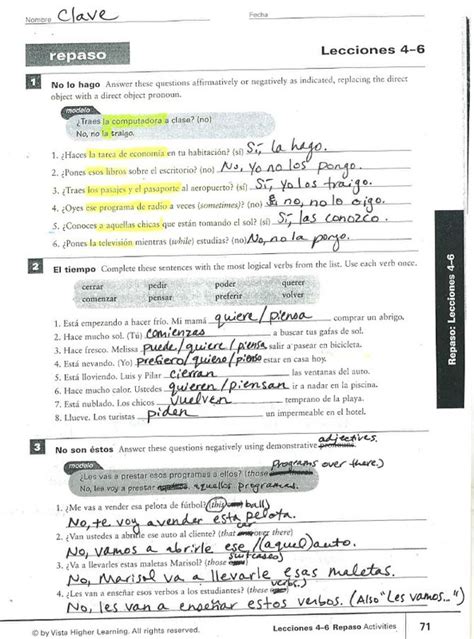 Nombre Clave Fecha
repaso Lecciones 4–6
1 No lo hago Answer these questions affirmatively or negatively as indicated, replacing the direct
object with a direct object pronoun.
modelo
¿Traes la computadora a clase? (no)
No, no la traigo.
1. ¿Haces la tarea de economía en tu habitación? (sí) Sí, la hago.
2. ¿Pones esos libros sobre el escritorio? (no) No, yo no los pongo.
3. ¿Traes los pasajes y el pasaporte al aeropuerto? (sí) Sí, yo los traigo.
4. ¿Oyes ese programa de radio a veces (sometimes)? (no) no, no lo oigo.
5. ¿Conoces a aquellas chicas que están tomando el sol? (sí) Sí, las conozco.
6. ¿Pones la televisión mientras (while) estudias? (no) No, no la pongo.
2 El tiempo Complete these sentences with the most logical verbs from the list. Use each verb once.
cerrar pedir poder querer
comenzar pensar preferir volver
1. Está empezando a hacer frío. Mi mamá quiere/piensa comprar un abrigo.
2. Hace mucho sol. (Tú) comienzas a buscar tus gafas de sol.
3. Hace fresco. Melissa puede/quiere/piensa salir a pasear en bicicleta.
4. Está nevando. (Yo) prefiero/quiero/pienso estar en casa hoy.
5. Está lloviendo. Luis y Pilar cierran las ventanas del auto.
6. Hace mucho calor. Ustedes quieren/piensan ir a nadar en la piscina.
7. Está nublado. Los chicos vuelven temprano de la playa.
8. Llueve. Los turistas piden un impermeable en el hotel.
3 No son éstos Answer these questions negatively using demonstrative pronouns. adjectives.
modelo
¿Les vas a prestar esos programas a ellos? (those programs over there)
No, les voy a prestar aquellos programas.
1. ¿Me vas a vender esa pelota de fútbol? (this ball)
No, te voy a vender esta pelota.
2. ¿Van ustedes a abrirle ese auto al cliente? (that car over there)
No, vamos a abrirle ese/(aquel) auto.
3. ¿Va a llevarles estas maletas Marisol? (those suitcases)
No, Marisol va a llevarle esas maletas.
4. ¿Les van a enseñar esos verbos a los estudiantes? (these verbs.)
No, les van a enseñar estos verbos. (Also "Les vamos..")
© by Vista Higher Learning. All rights reserved. Lecciones 4–6 Repaso Activities 71
Repaso: Lecciones 4–6